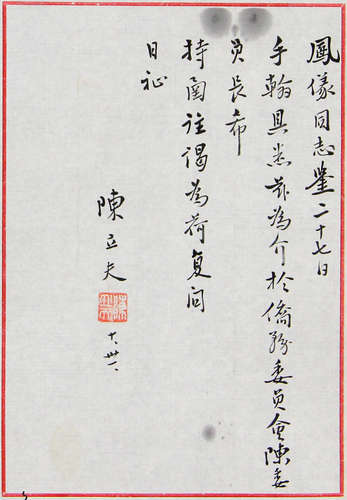 鳳儀同志鑒二十七日
手翰具悉茲為介於僑務委員會陳委
員長希
持函往謁為荷复问
日祉
陳立夫
十、卅一、